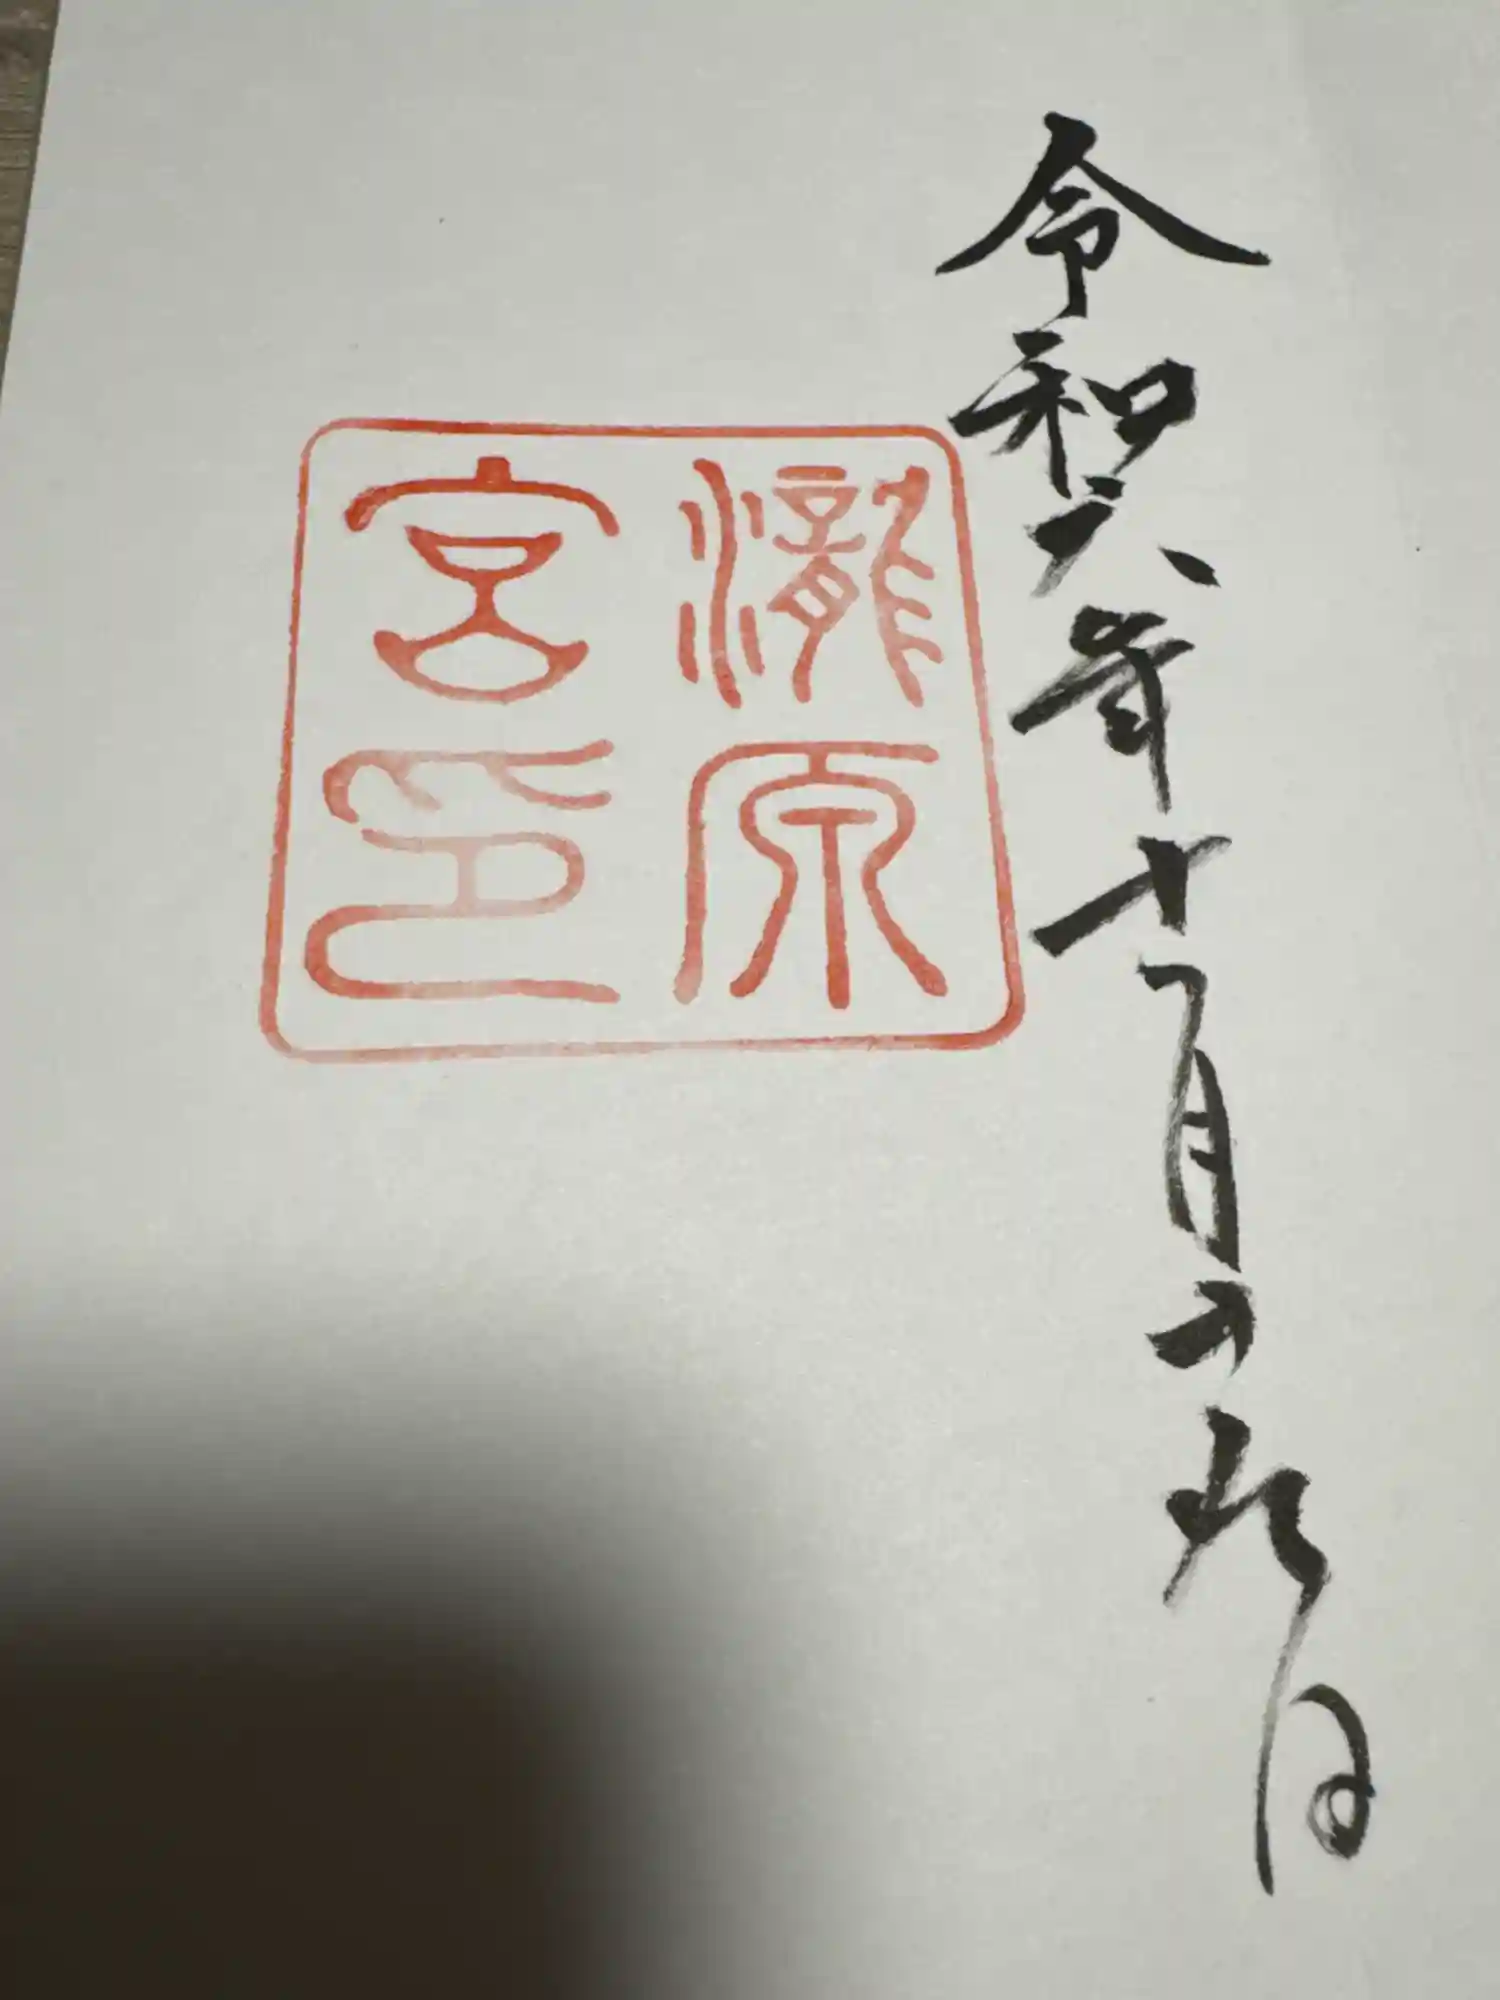 令和六年十一月二十九日
瀧原
宮印